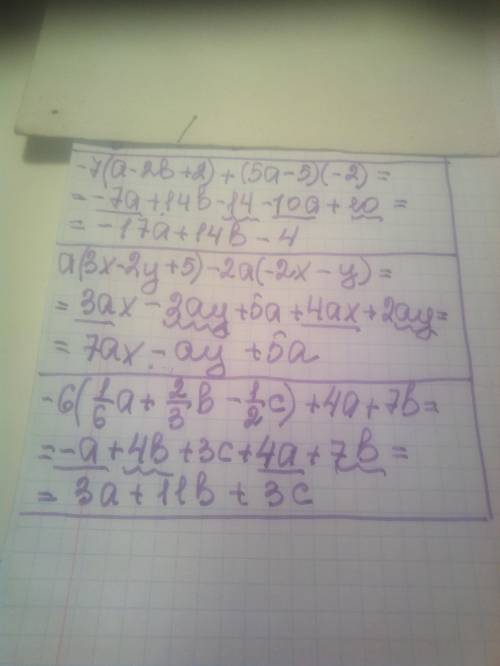 -7(a-2b+2)+(5a-5)(-2)=
=-7a+14b-14-10a+10=
=-17a+14b-4
a(3x-2y+5)-2a(-2x-y)=
=3ax-3ay+5a+4ax+2ay=
=7ax-ay+5a
-6(1/6a+2/3b-1/2c)+4a+7b=
=-a+4b+3c+4a+7b=
=3a+11b+3c